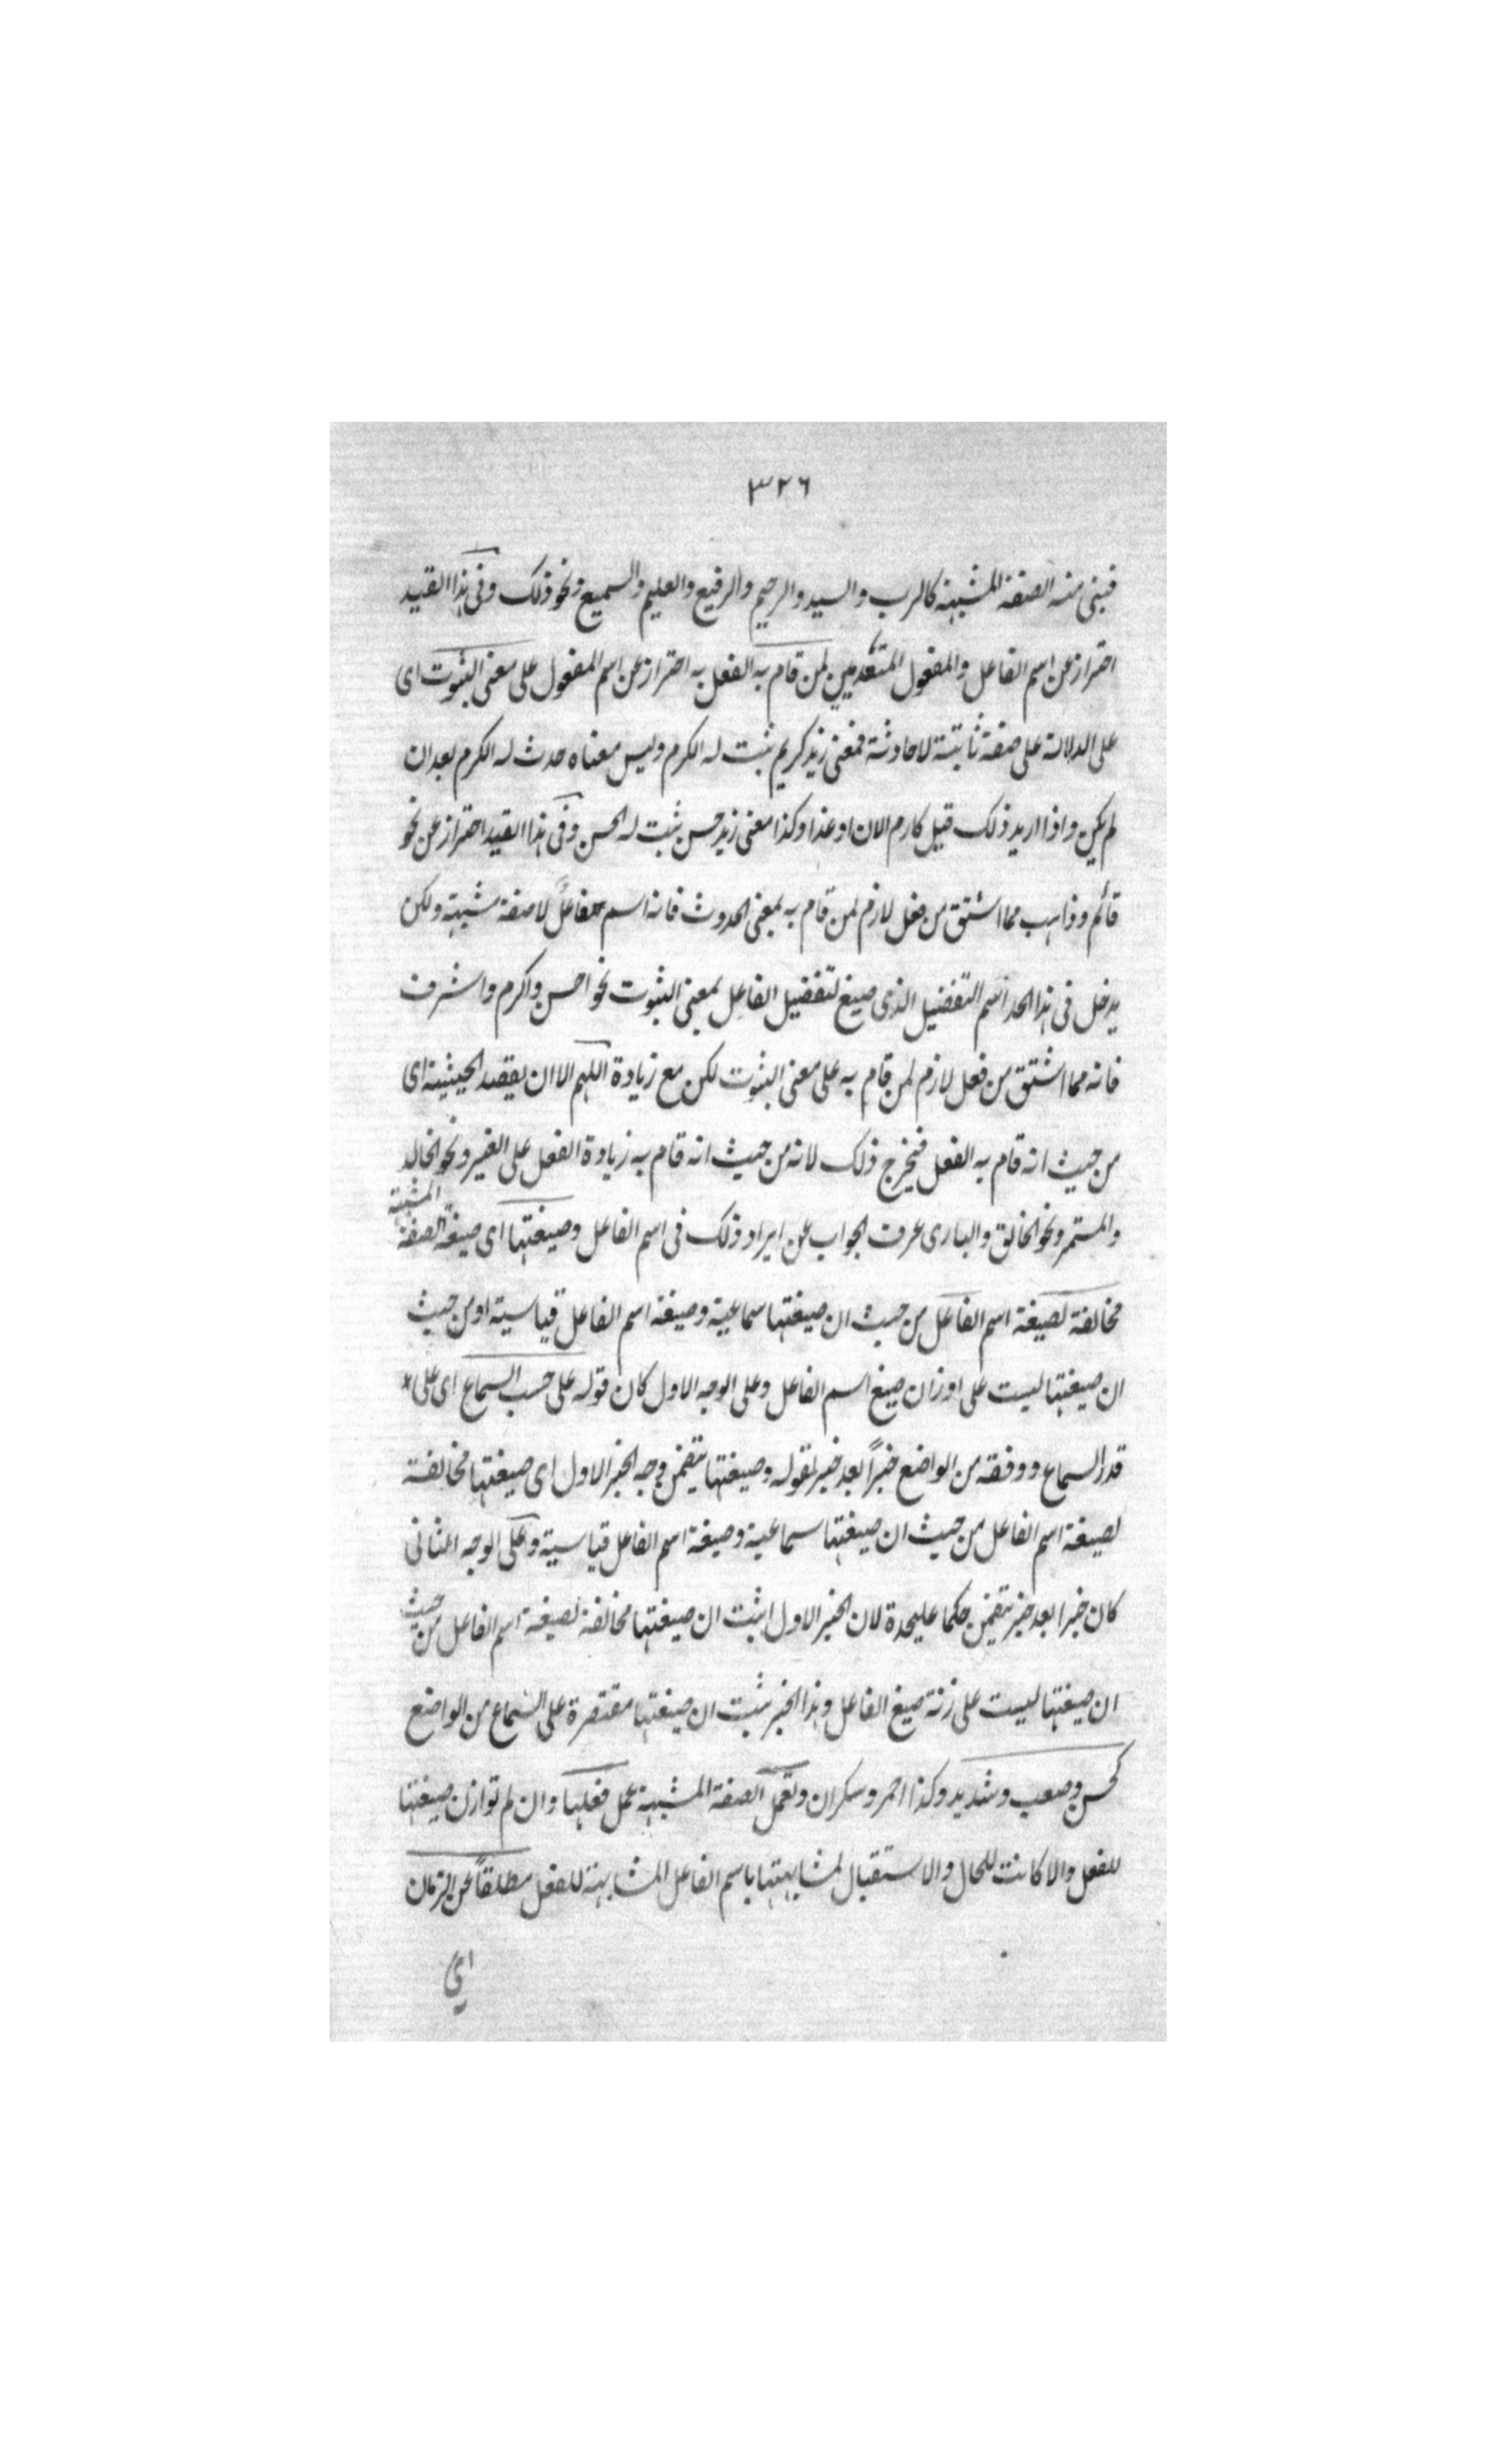 ٣٢٦
فبنى منه الصفة المشبهة كالرب والسيد والرحيم والرفيع والعليم والسميع ونحو ذلك وفى هذا القيد
احتراز عن اسم الفاعل والمفعول المتعديين لمن قام به الفعل به احتراز عن اسم المفعول على معنى الثبوت اى
على الدلالة على صفة ثابتة لا حادثة فمعنى زيد كريم ثبت له الكرم وليس معناه حدث له الكرم بعد ان
لم يكن واذا اريد ذلك قيل كارم الان او غدا وكذا معنى زيد حسن ثبت له الحسن وفى هذا القيد احتراز عن نحو
قائم وذاهب مما اشتق من فعل لازم لمن قام به بمعنى الحدوث فانه اسم فاعل لا صفة مشبهة ولكن
يدخل فى هذا الحد اسم التفضيل الذى صيغ لتفضيل الفاعل بمعنى الثبوت نحو احسن واكرم واشرف
فانه مما اشتق من فعل لازم لمن قام به على معنى الثبوت لكن مع زيادة اللهم الا ان يقصد الحيثية اى
من حيث انه قام به الفعل فيخرج ذلك لانه من حيث انه قام به زيادة الفعل على الغير ونحو الخالد
والمستمر ونحو الخالق والبارى عرف الجواب عن ايراد ذلك فى اسم الفاعل وصيغتها اى صيغة الصفة المشبهة
مخالفة لصيغة اسم الفاعل من حيث ان صيغتها سماعية وصيغة اسم الفاعل قياسية او من حيث
ان صيغتها ليست على اوزان صيغ اسم الفاعل وعلى الوجه الاول كان قوله على حسب السماع اى على
قدر السماع ووفقه من الواضع خبراً بعد خبر لقوله وصيغتها يتضمن وجه الخبر الاول اى صيغتها مخالفة
لصيغة اسم الفاعل من حيث ان صيغتها سماعية وصيغة اسم الفاعل قياسية وعلى الوجه الثانى
كان خبرا بعد خبر يتضمن حكما عليحدة لان الخبر الاول اثبت ان صيغتها مخالفة لصيغة اسم الفاعل من حيث
ان صيغتها ليست على زنة صيغ الفاعل وهذا الخبر يثبت ان صيغتها مقتصرة على السماع من الواضع
كحسن وصعب وشديد وكذا احمر وسكران وتعمل الصفة المشبهة عمل فعلها وان لم توازن صيغتها
للفعل والا كانت للحال والاستقبال لمشابهتها باسم الفاعل المشابهة للفعل مطلقاً عن الزمان
اى